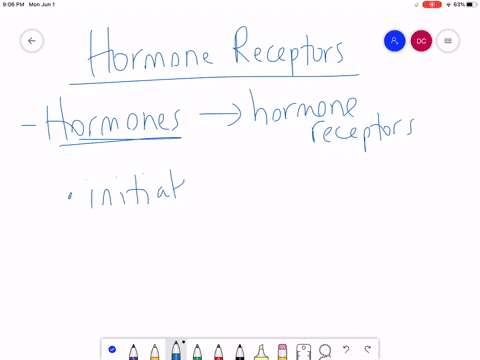 9:06 PM Mon Jun 1
63%
DC
Hormone Receptors
- Hormones → hormone
receptors
• initiat